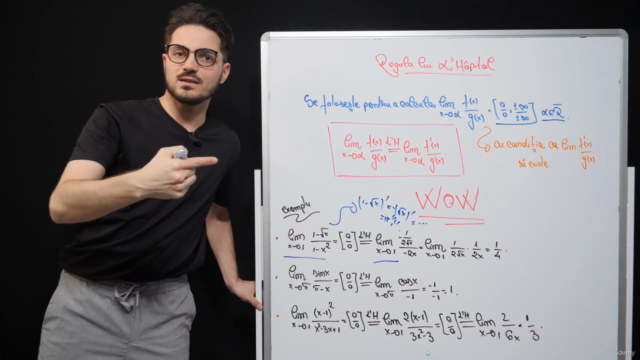 Regula lui L'Hôpital
Se folosește pentru a calcula lim x→α f(x)/g(x) = [0/0, ±∞/±∞] α∈R̄
lim x→α f(x)/g(x) L'H= lim x→α f'(x)/g'(x)
cu condiția ca lim f'(x)/g'(x)
să existe
WOW
exemple
(1-√x)'
• lim x→1 (1-√x)/(1-x²) = [0/0] L'H= lim x→1 (-1/(2√x))/(-2x) = lim x→1 1/(2√x) · 1/(2x) = 1/4.
• lim x→π sinx/(π-x) = [0/0] L'H= lim x→π cosx/-1 = -1/-1 = 1.
• lim x→1 (x-1)²/(x³-3x+2) = [0/0] L'H= lim x→1 2(x-1)/(3x²-3) = [0/0] L'H= lim x→1 2/6x = 1/3.